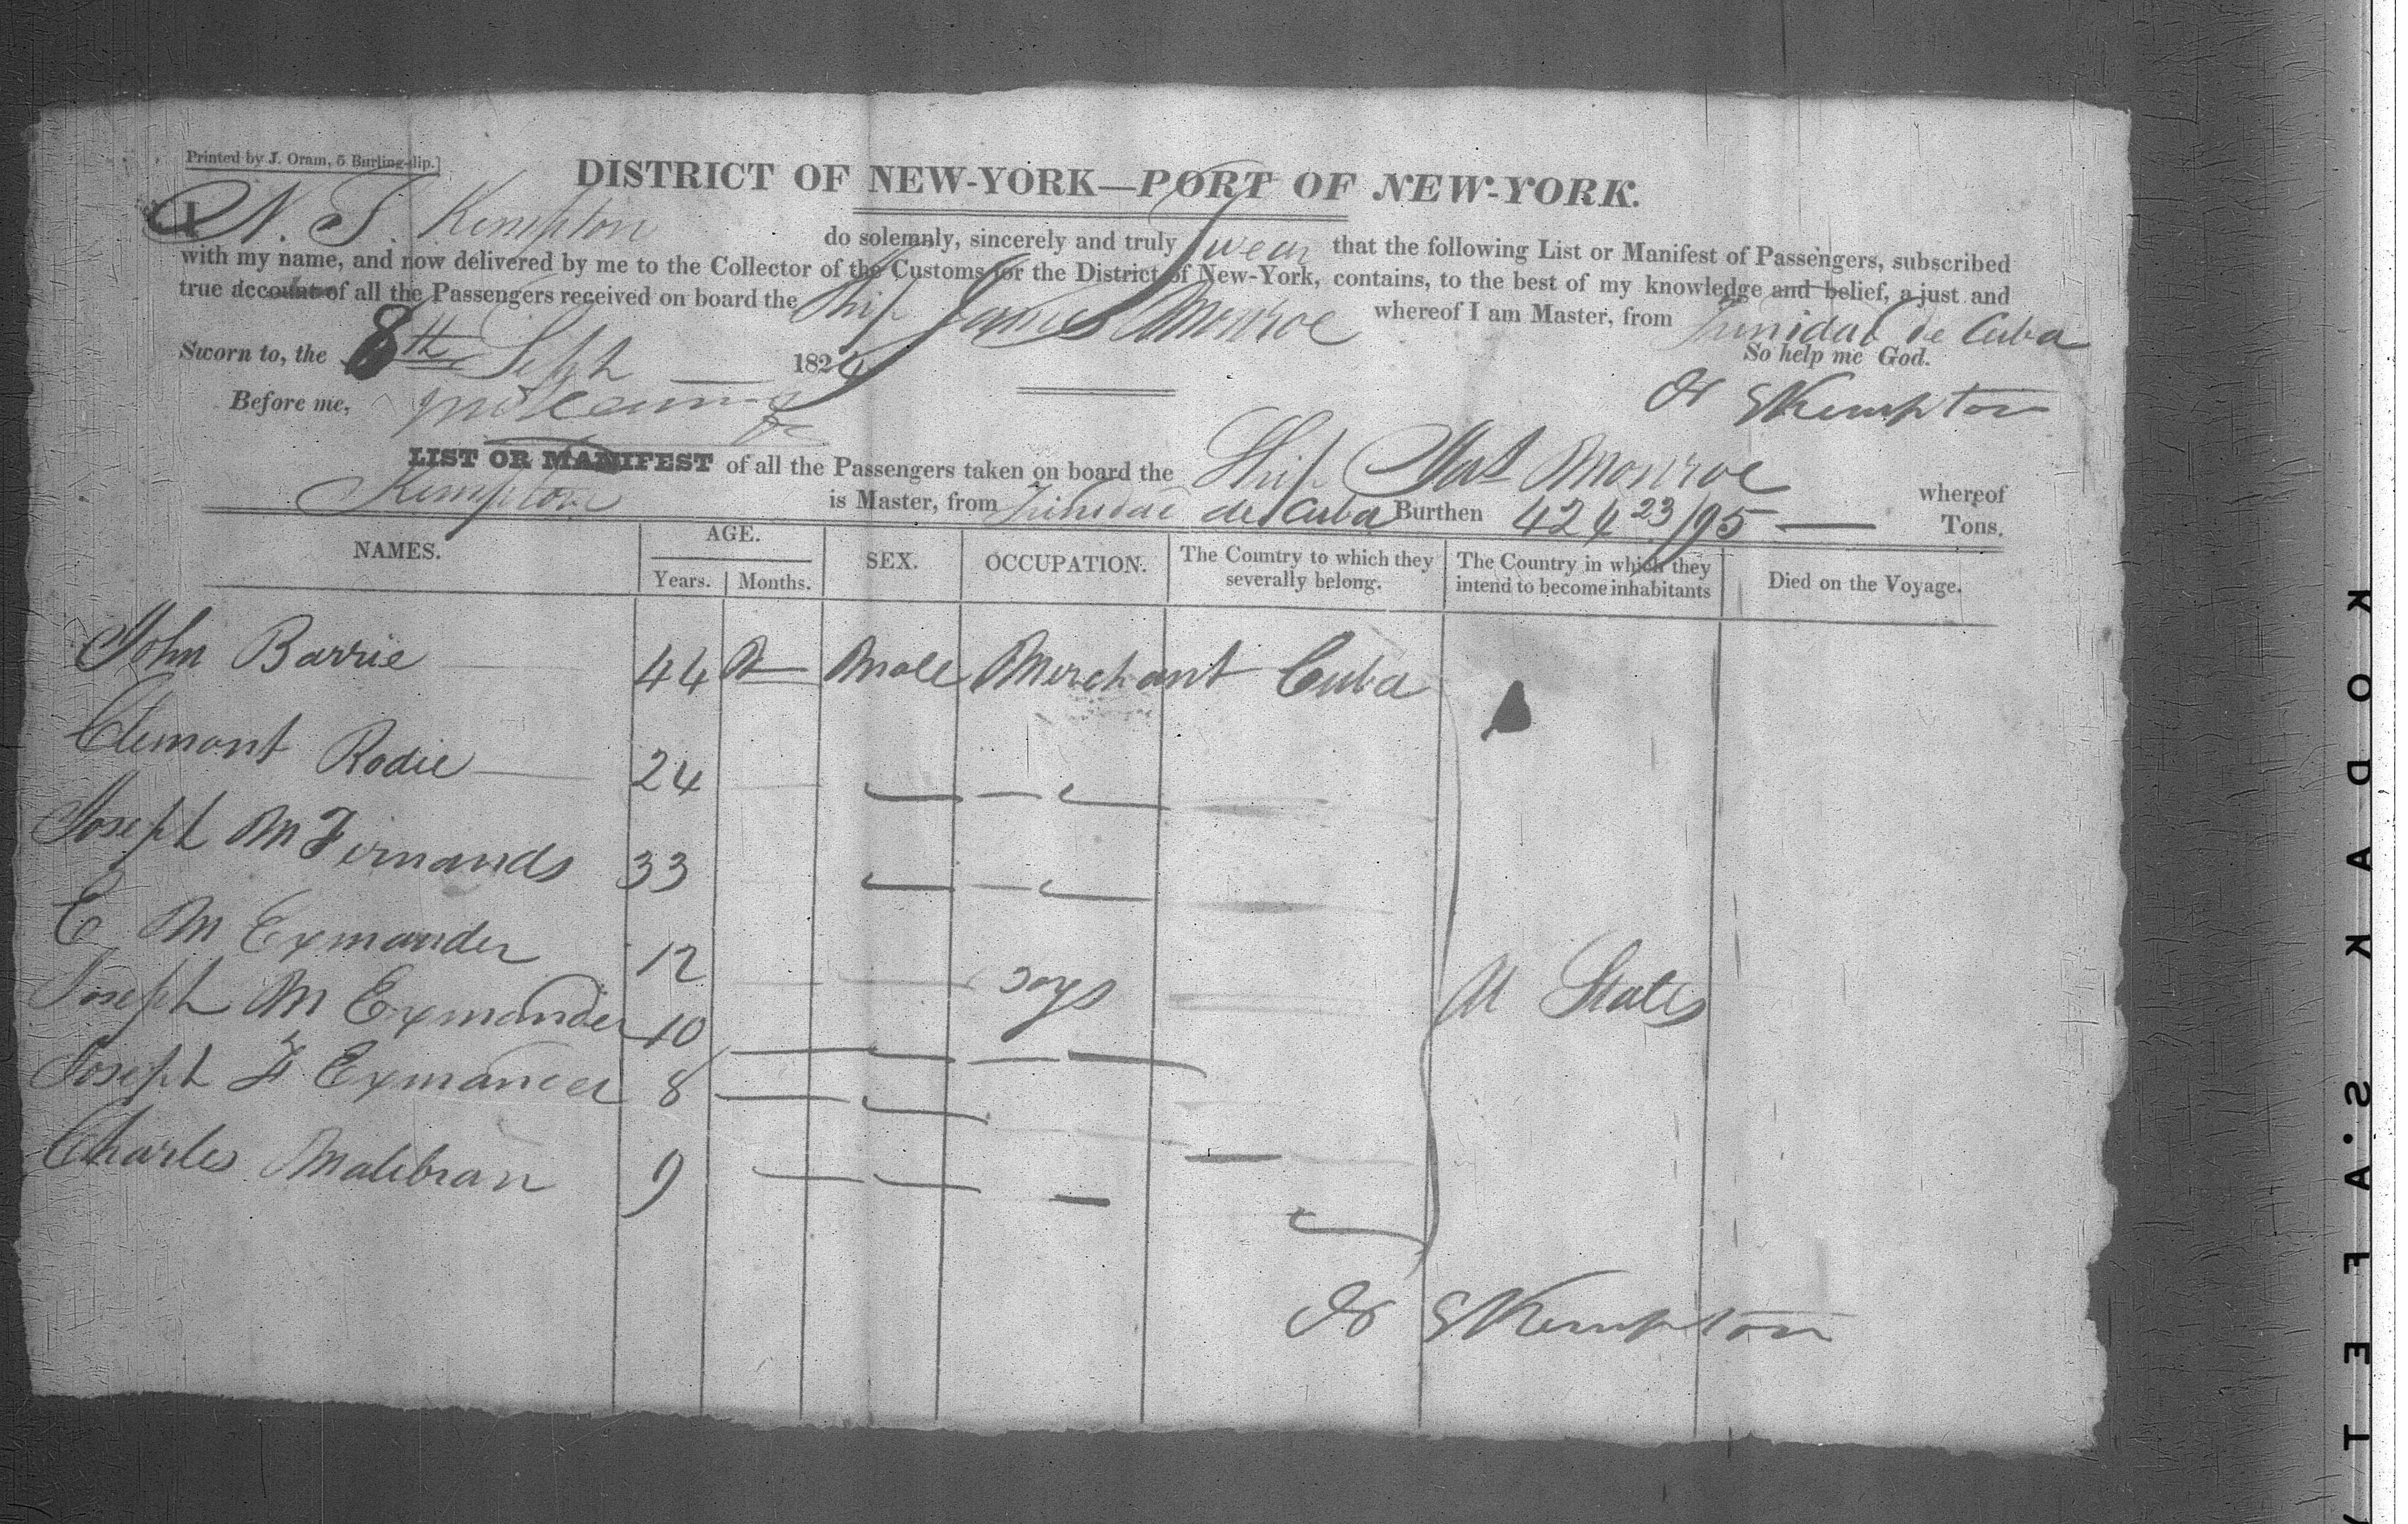 Printed by J. Oram, 5 Burling-slip.]
DISTRICT OF NEW-YORK—PORT OF NEW-YORK.
I N. S. Kempton do solemnly, sincerely and truly Swear that the following List or Manifest of Passengers, subscribed
with my name, and now delivered by me to the Collector of the Customs for the District of New-York, contains, to the best of my knowledge and belief, a just and
true account of all the Passengers received on board the Ship James Monroe whereof I am Master, from Trinidad de Cuba
Sworn to, the 8th Sept 182 So help me God.
Before me,
Kempton
LIST OR MANIFEST of all the Passengers taken on board the Ship Jas Monroe whereof
Kempton is Master, from Trinidad de Cuba Burthen 424 23/95 Tons.
NAMES. AGE. SEX. OCCUPATION. The Country to which they severally belong. The Country in which they intend to become inhabitants Died on the Voyage.
Years. Months.
John Barrie 44 Male Merchant Cuba
Clemont Rodie 24
Joseph M Fernands 33
C M Exmander 12 Boys
Joseph M Exmander 10 U States
Joseph F Exmander 8
Charles Malibran 9
Kempton
KODAK S.A.F.E.T.Y